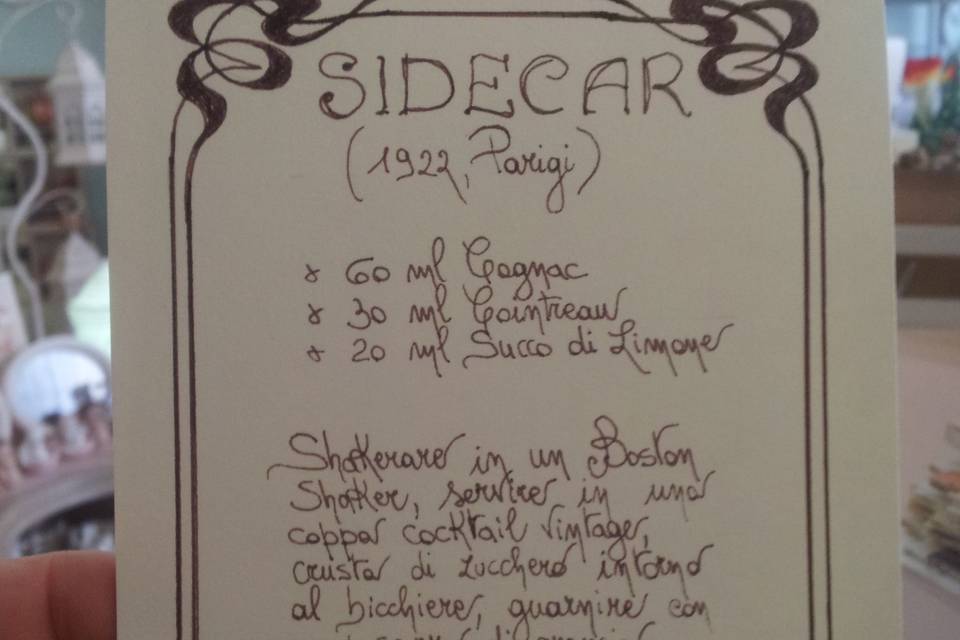 SIDECAR
(1922, Parigi)
* 60 ml Cognac
* 30 ml Cointreau
* 20 ml Succo di Limone
Shakerare in un Boston
Shaker, servire in una
coppa cocktail vintage,
crusta di zucchero intorno
al bicchiere, guarnire con